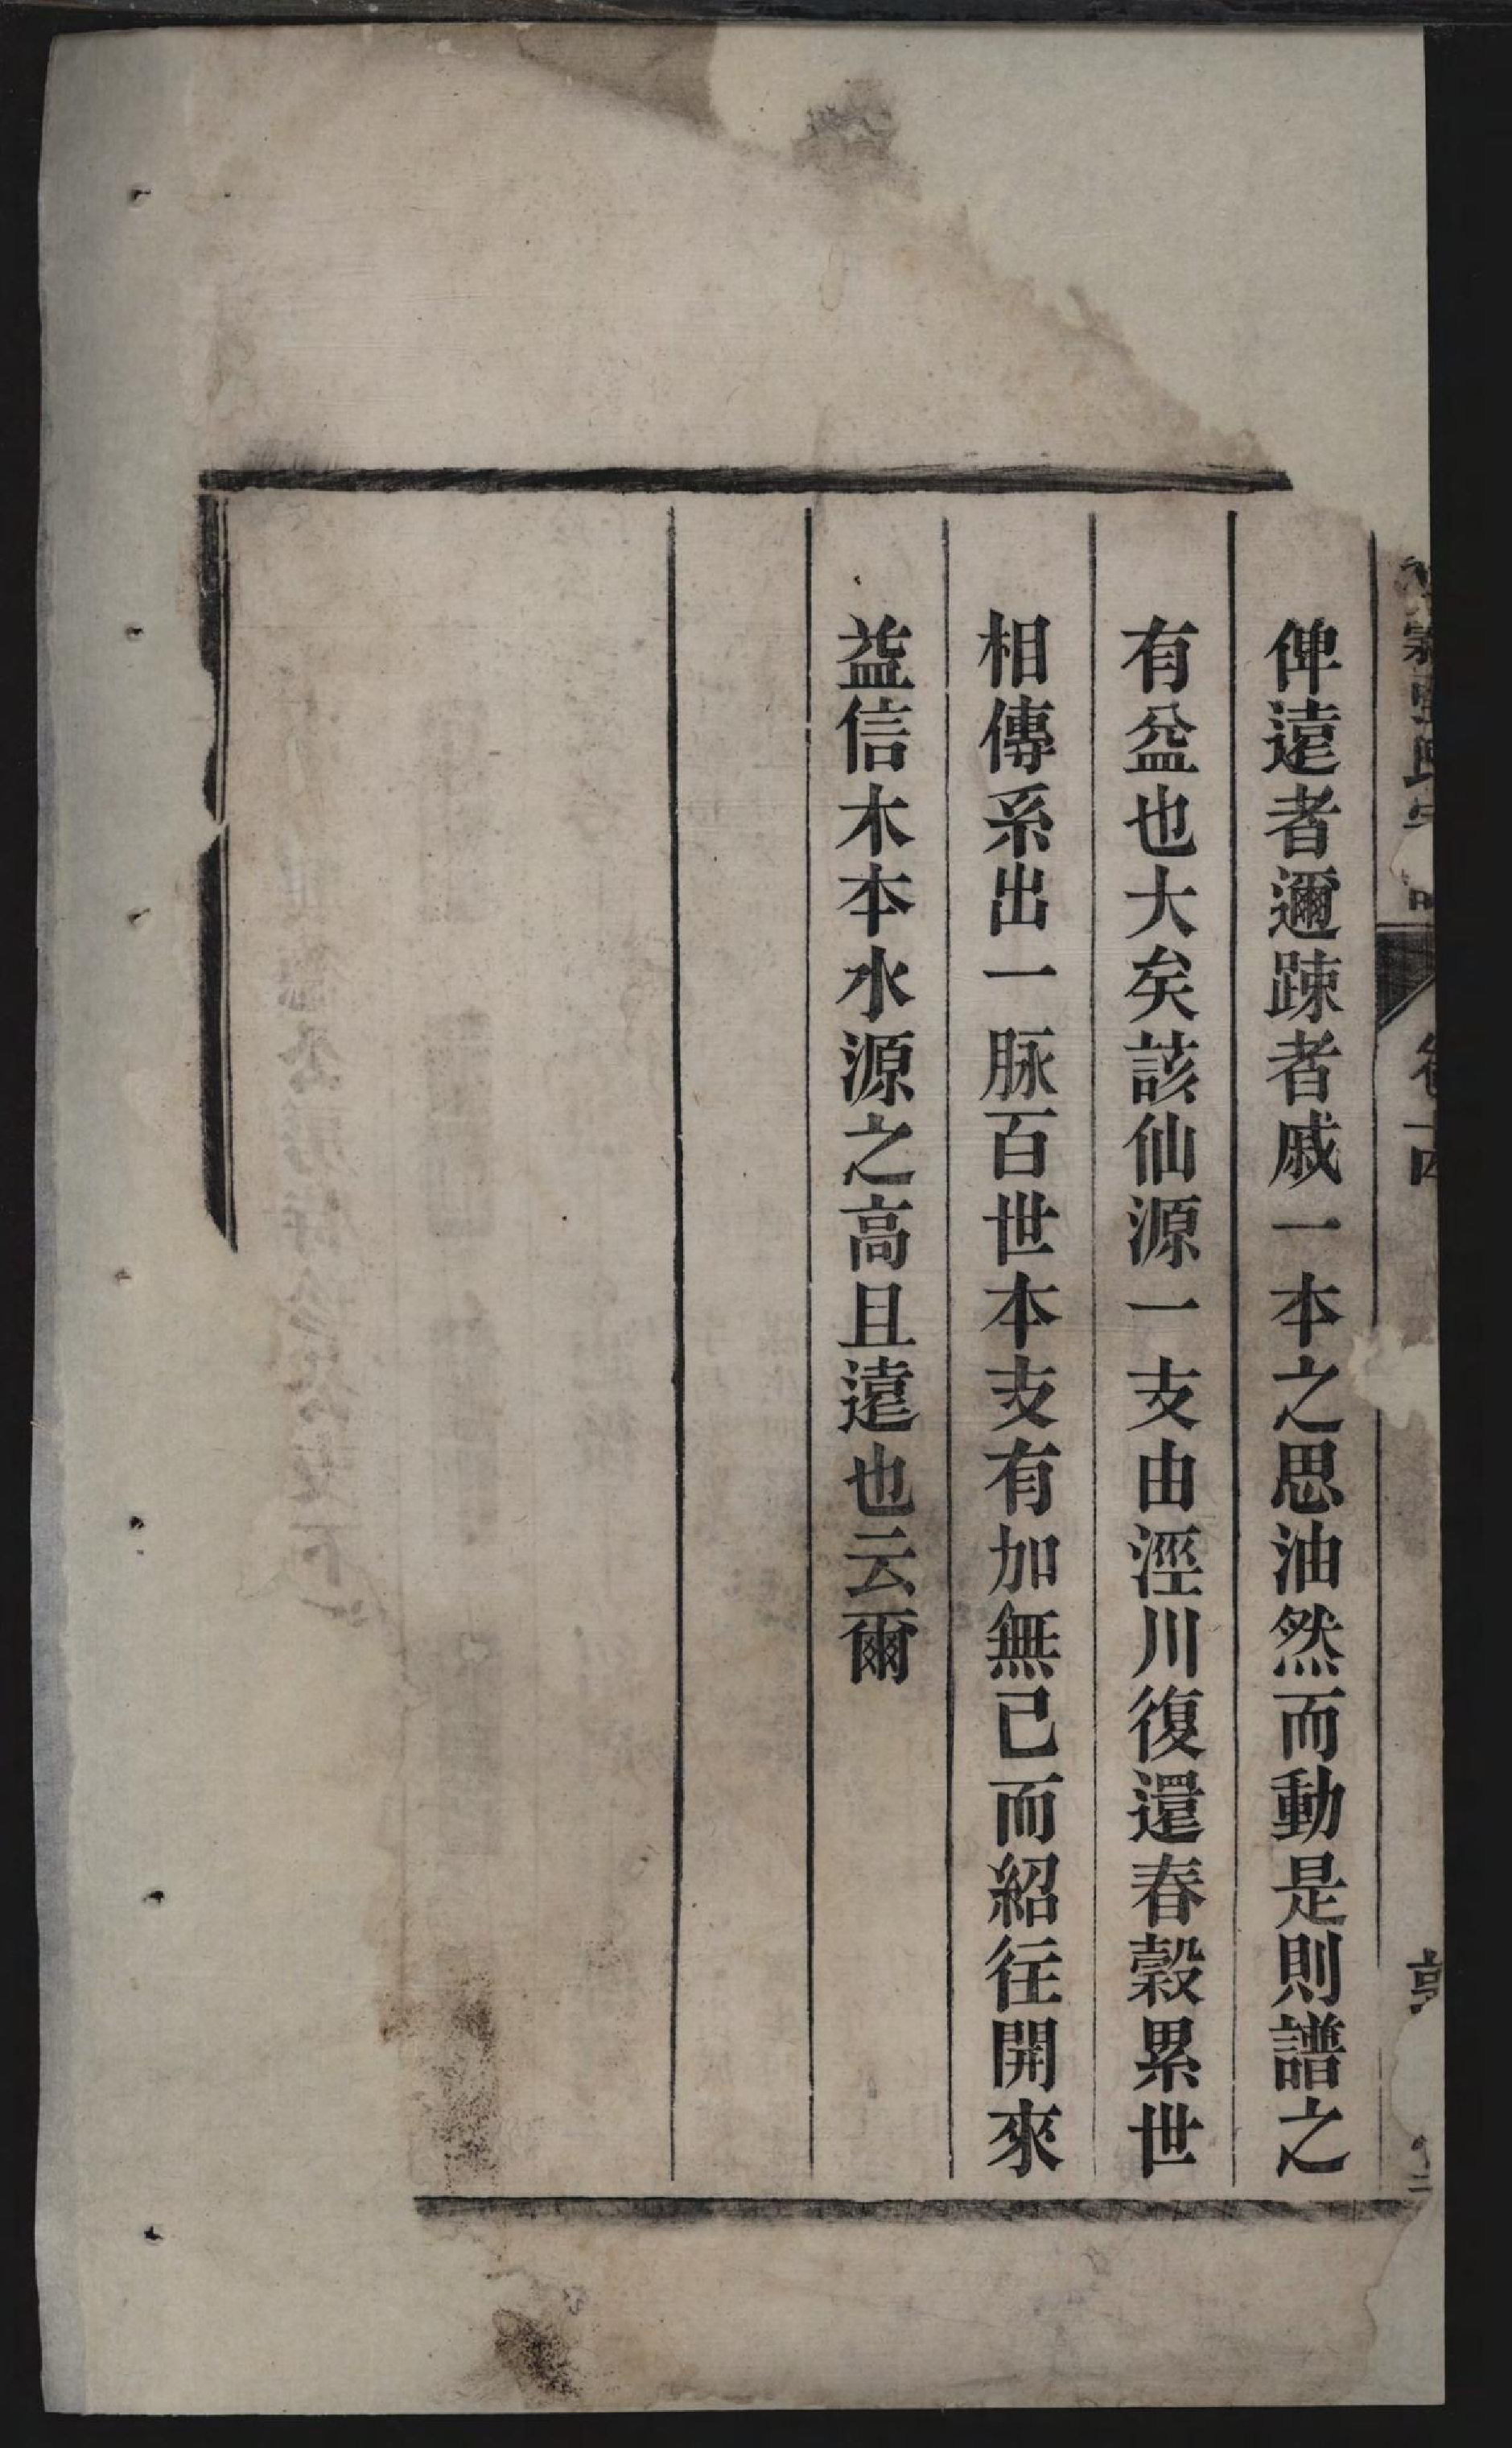 俾遠者邇踈者戚一本之思油然而動是則譜之
有益也大矣該仙源一支由涇川復還春穀累世
相傳系出一脉百世本支有加無已而紹往開來
益信木本水源之高且遠也云爾
卷十四